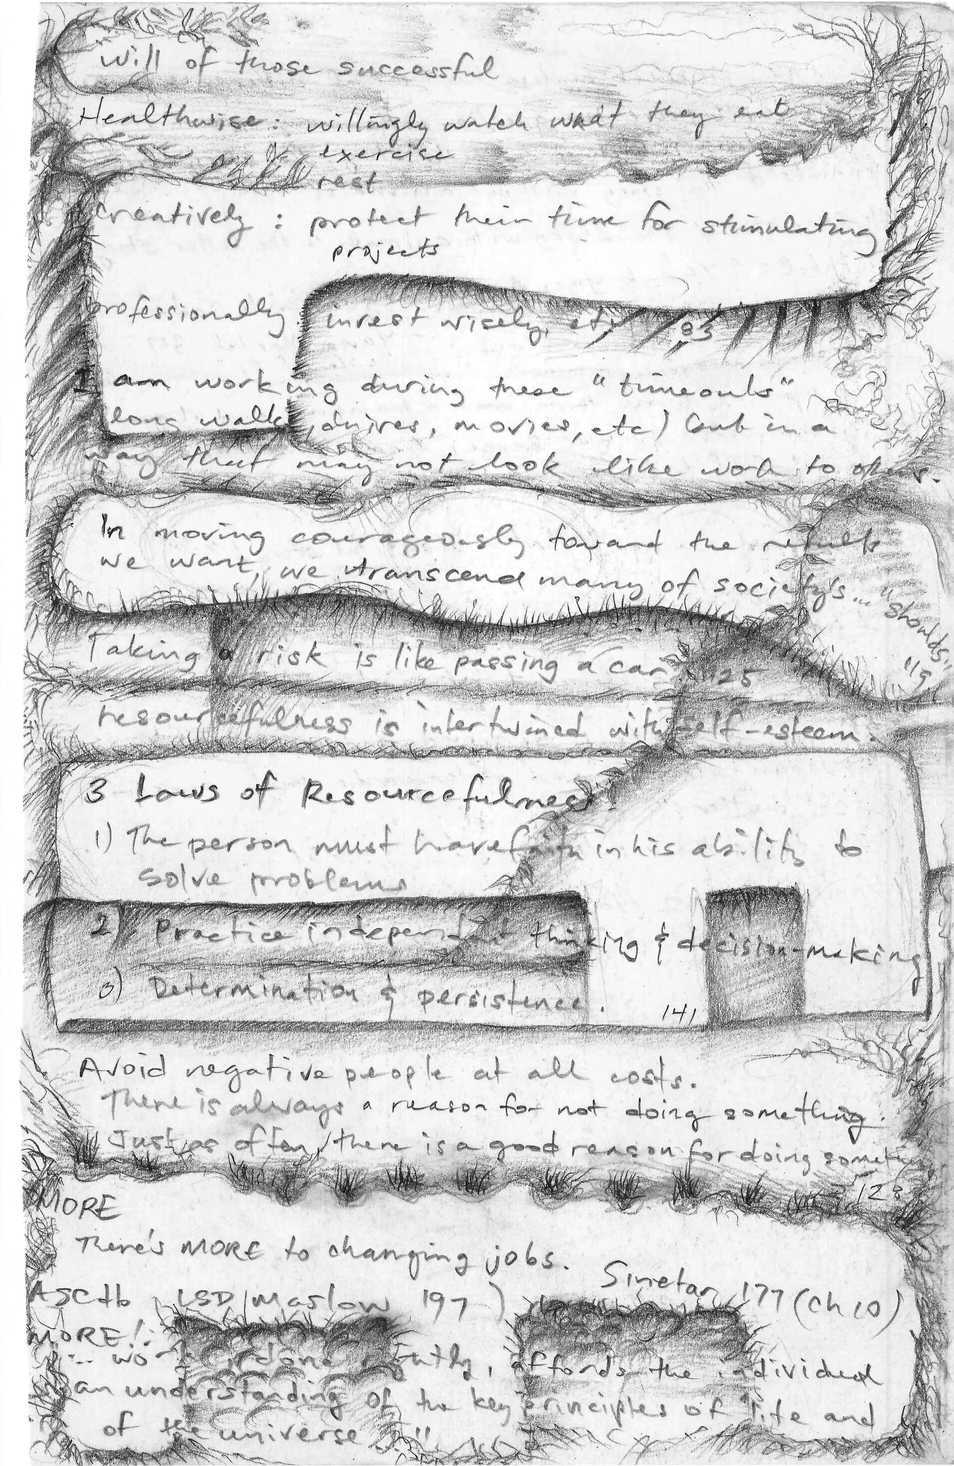 Will of those successful
Healthwise: willingly watch what they eat
exercise
rest
Creatively: protect their time for stimulating
projects
professionally: invest wisely, etc 83
I am working during these "timeouts"
(long walks, drives, movies, etc) but in a
way that may not look like work to others.
In moving courageously toward the results
we want, we transcend many of society's... "shoulds"
115
Taking a risk is like passing a car 125
resourcefulness is intertwined with self-esteem.
3 Laws of Resourcefulness:
1) The person must have faith in his ability to
solve problems
2) Practice independent thinking & decision-making
3) Determination & persistence. 141
Avoid negative people at all costs.
There is always a reason for not doing something.
Just as often, there is a good reason for doing something.
MORE
There's MORE to changing jobs.
Sinetar 177 (Ch 10)
LSD/Maslow 197)
MORE!:
"... work, done rightly, affords the individual
an understanding of the key principles of life and
of the universe..."